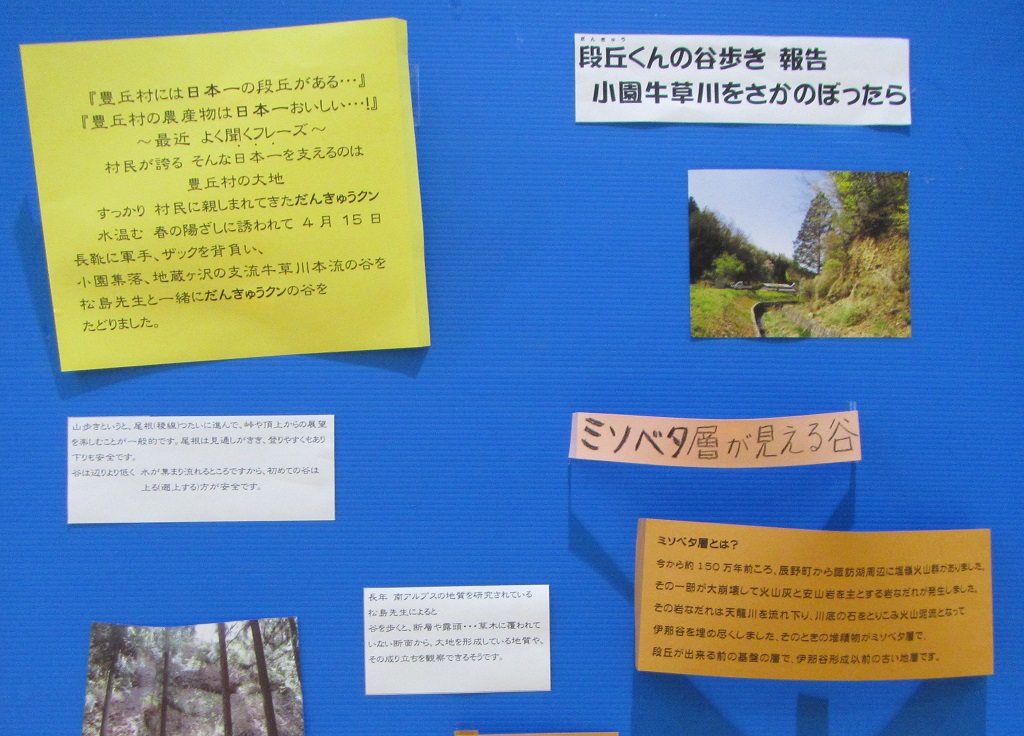 『豊丘村には日本一の段丘がある…』
『豊丘村の農産物は日本一おいしい…!』
～最近 よく聞くフレーズ～
村民が誇る そんな日本一を支えるのは
豊丘村の大地
すっかり 村民に親しまれてきただんきゅうクン
水温む 春の陽ざしに誘われて 4月 15日
長靴に軍手、ザックを背負い、
小園集落、地蔵ヶ沢の支流牛草川本流の谷を
松島先生と一緒にだんきゅうクンの谷を
たどりました。
だんきゅう
段丘くんの谷歩き 報告
小園牛草川をさかのぼったら
山歩きというと、尾根(稜線)つたいに進んで、峠や頂上からの展望
を楽しむことが一般的です。尾根は見通しがきき、登りやすくもあり
下りも安全です。
谷は辺りより低く 水が集まり流れるところですから、初めての谷は
上る(遡上する)方が安全です。
ミソベタ層が見える谷
ミソベタ層とは?
今から約150万年前ころ、辰野町から諏訪湖周辺に塩嶺火山群がありました。
その一部が大崩壊して火山灰と安山岩を主とする岩なだれが発生しました。
その岩なだれは天龍川を流れ下り、川底の石をとりこみ火山泥流となって
伊那谷を埋め尽くしました、そのときの堆積物がミソベタ層で、
段丘が出来る前の基盤の層で、伊那谷形成以前の古い地層です。
長年 南アルプスの地質を研究されている
松島先生によると
谷を歩くと、断層や露頭・・・草木に覆われて
いない断面から、大地を形成している地質や、
その成り立ちを観察できるそうです。